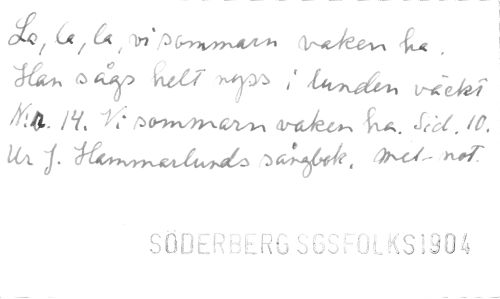 La, la, la, vi sommarn vaken ha.
Han sågs helt nyss i lunden väckt
N:r. 14. Vi sommarn vaken ha. Sid. 10.
Ur J. Hammarlunds sångbok. met not.
SÖDERBERG SGSFOLKS1904